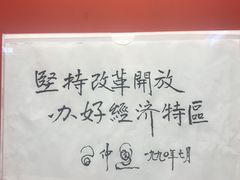 堅持改革開放
办好經济特區
仲 一九九〇年七月